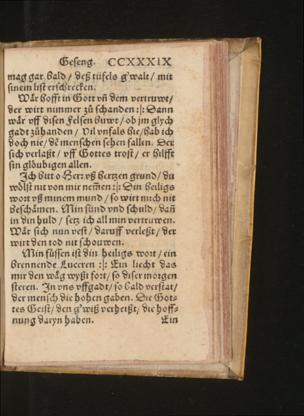 Geseng. CCXXXIX
mag gar bald / deß tüfels gwalt / mit
sinem list erschrecken.
Wär hofft in Gott vñ dem vertruwt /
der wirt nimmer zů schanden :|: Dann
wär vff disen felsen buwt / ob jm glych
gadt zůhanden / Vil vnfals hie / hab ich
doch nie / dẽ menschen sehen fallen. Der
sich verlaßt / vff Gottes trost / er hilfft
sin glöubigen allen.
Ich bitt o Herr vß hertzen grund / du
wölst nit von mir nemẽn :|: Din heiligs
wort vß minem mund / so wirt mich nit
beschämen. Min sünd vnd schuld / daß
in din huld / setz ich all min vertruwen.
Wär sich nun vest / daruff verleßt / der
wirt den tod nit schouwen.
Min füssen ist din heiligs wort / ein
brennende Luceren :|: Ein liecht das
mir den wäg wyßt fort / so diser morgen
sternen. In vns vffgadt / so bald verstat /
der mensch die hohen gaben. Die Got-
tes Geist / den gwiß verheißt / die hoff-
nung daryn haben.
Ein